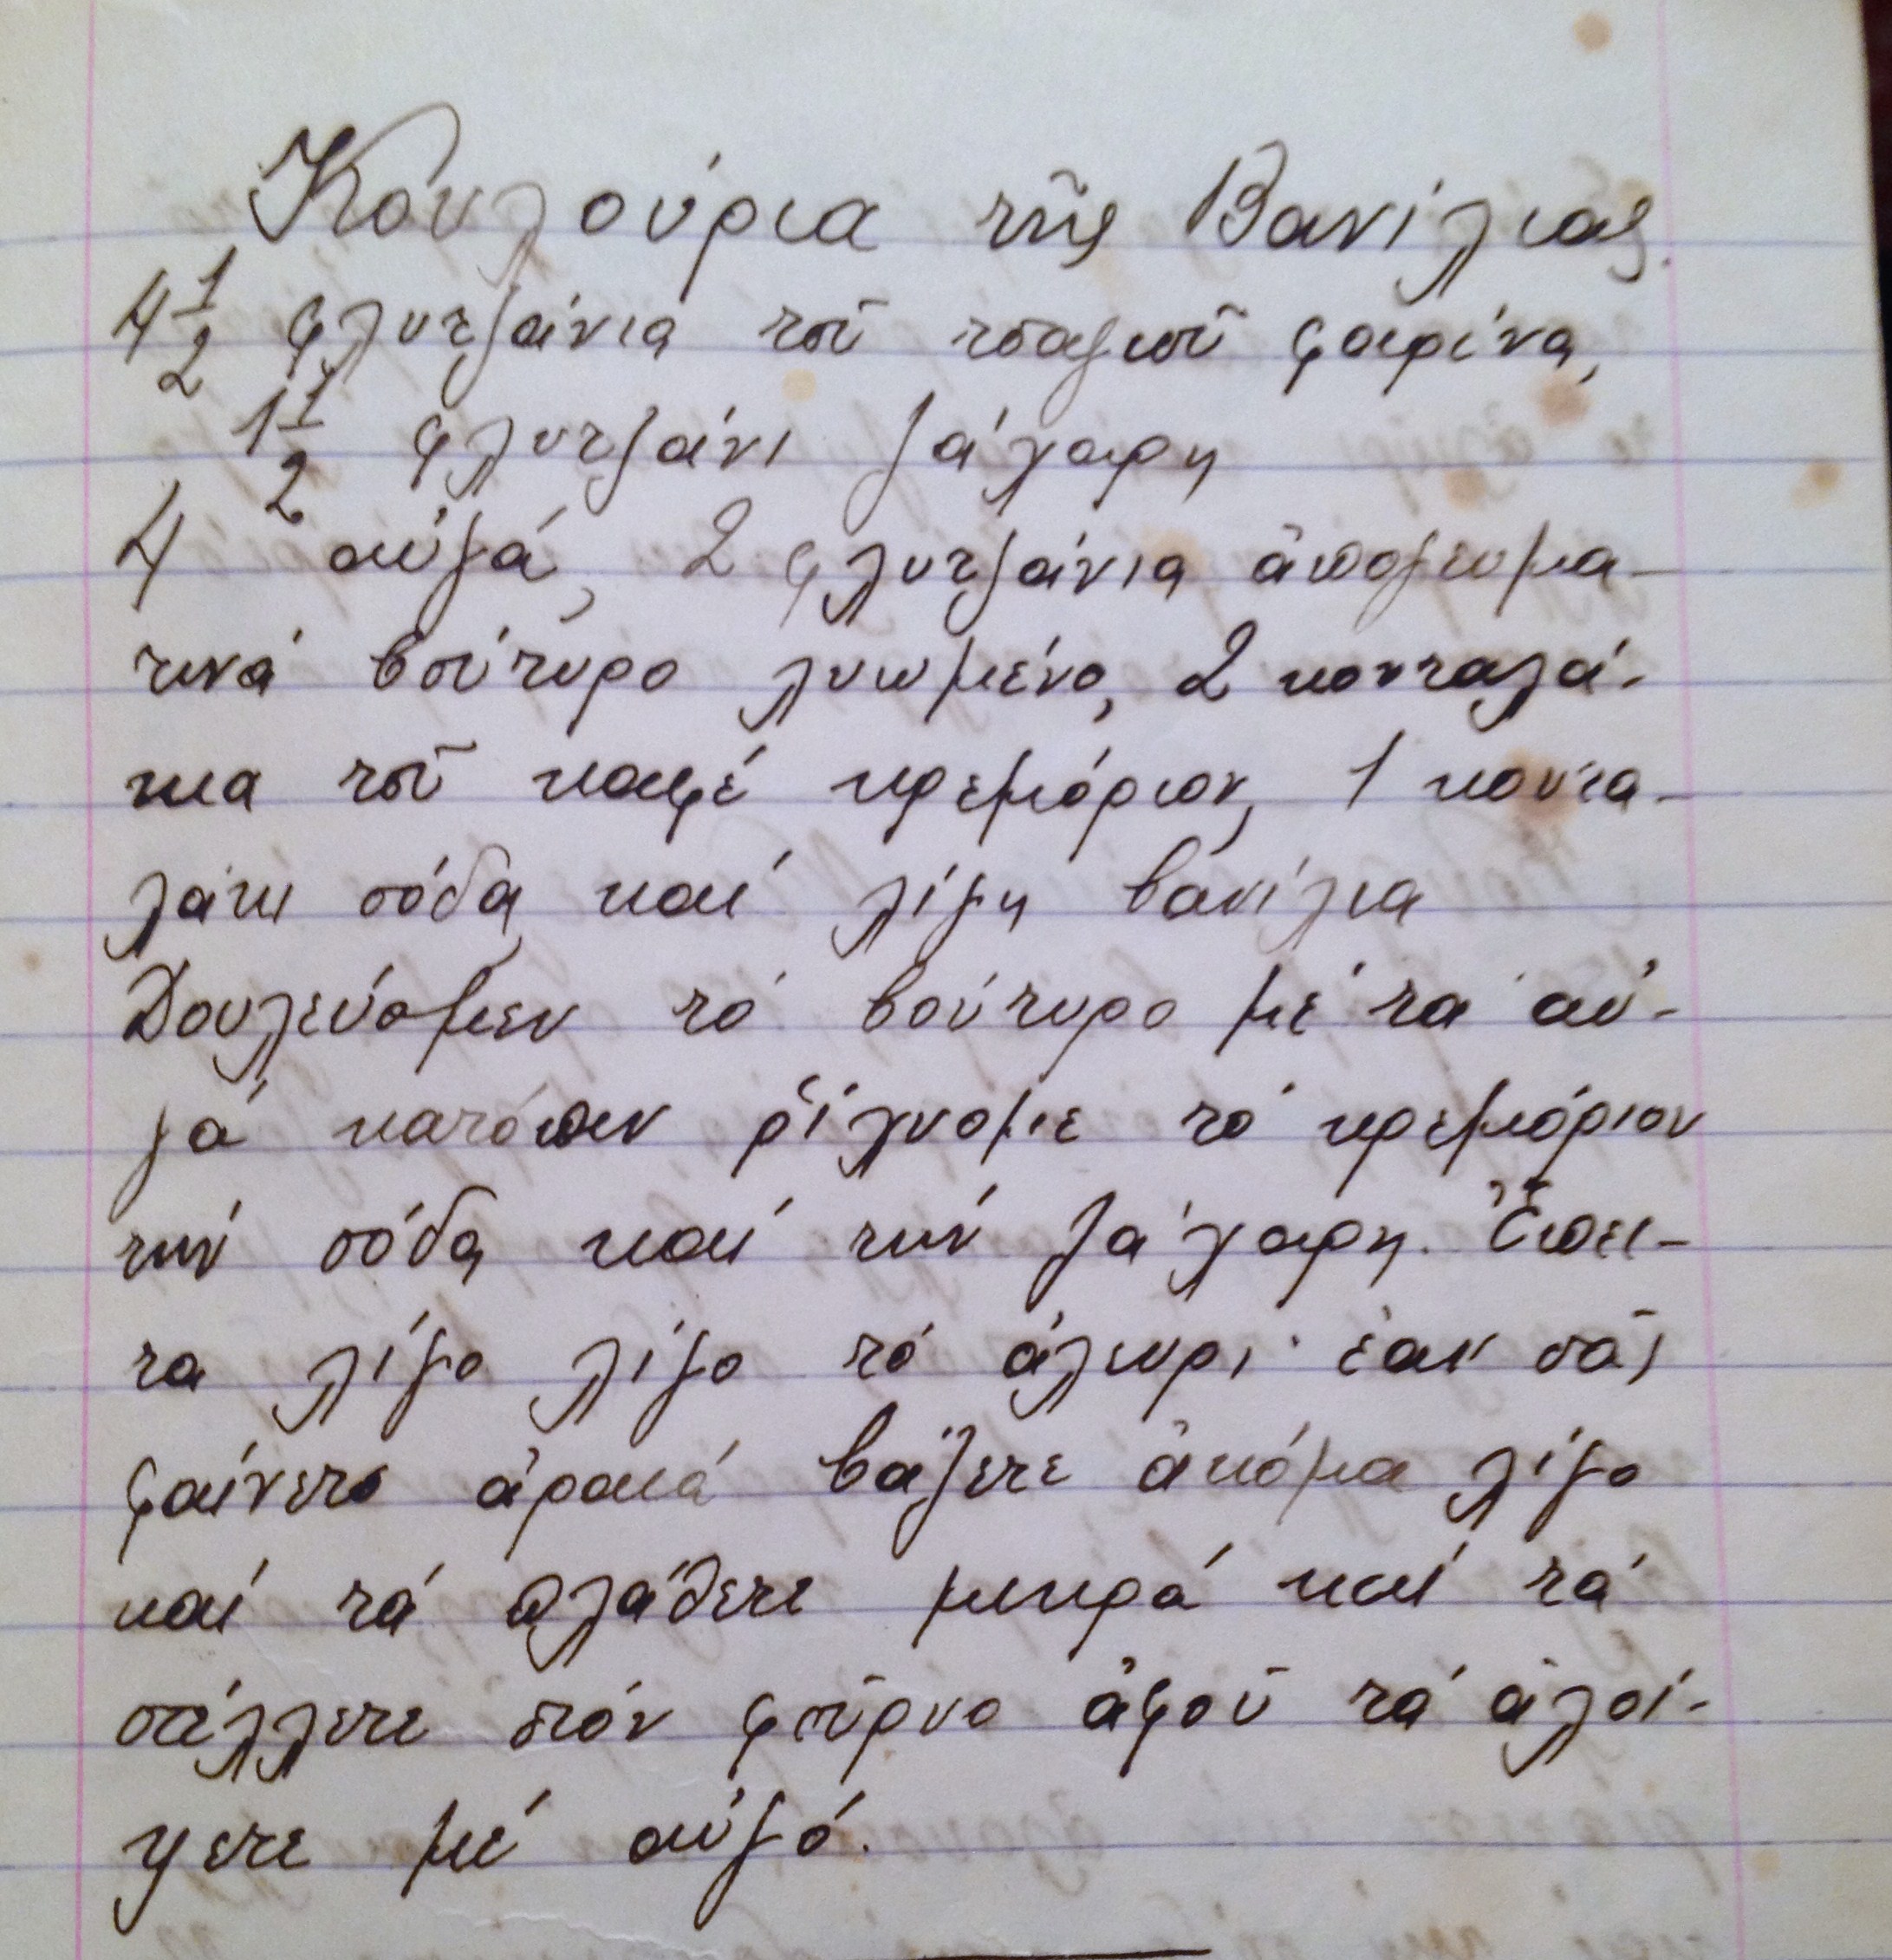 Κουλούρια τῆς Βανίλιας.
4 1/2 φλυτζάνια τοῦ τσαγιοῦ φαρίνα,
1 1/2 φλυτζάνι ζάχαρη
4 αὐγά, 2 φλυτζάνια ἀπογευμα-
τινά βούτυρο λυωμένο, 2 κουταλά-
κια τοῦ καφέ κρεμόριον, 1 κουτα-
λάκι σόδα καί λίγη βανίλια
Δουλεύομεν τό βούτυρο μέ τα αὐ-
γά κατόπιν ρίχνομε τό κρεμόριον
τήν σόδα καί τήν ζάχαρη. Ἔπει-
τα λίγο λίγο τό ἀλευρι· ἐαν σᾶς
φαίνετε ἀραιά βάζετε ἀκόμα λίγο
καί τά πλάθετε μικρά καί τά
στέλλετε στόν φοῦρνο ἀφοῦ τά ἀλοί-
ψετε μέ αὐγό.